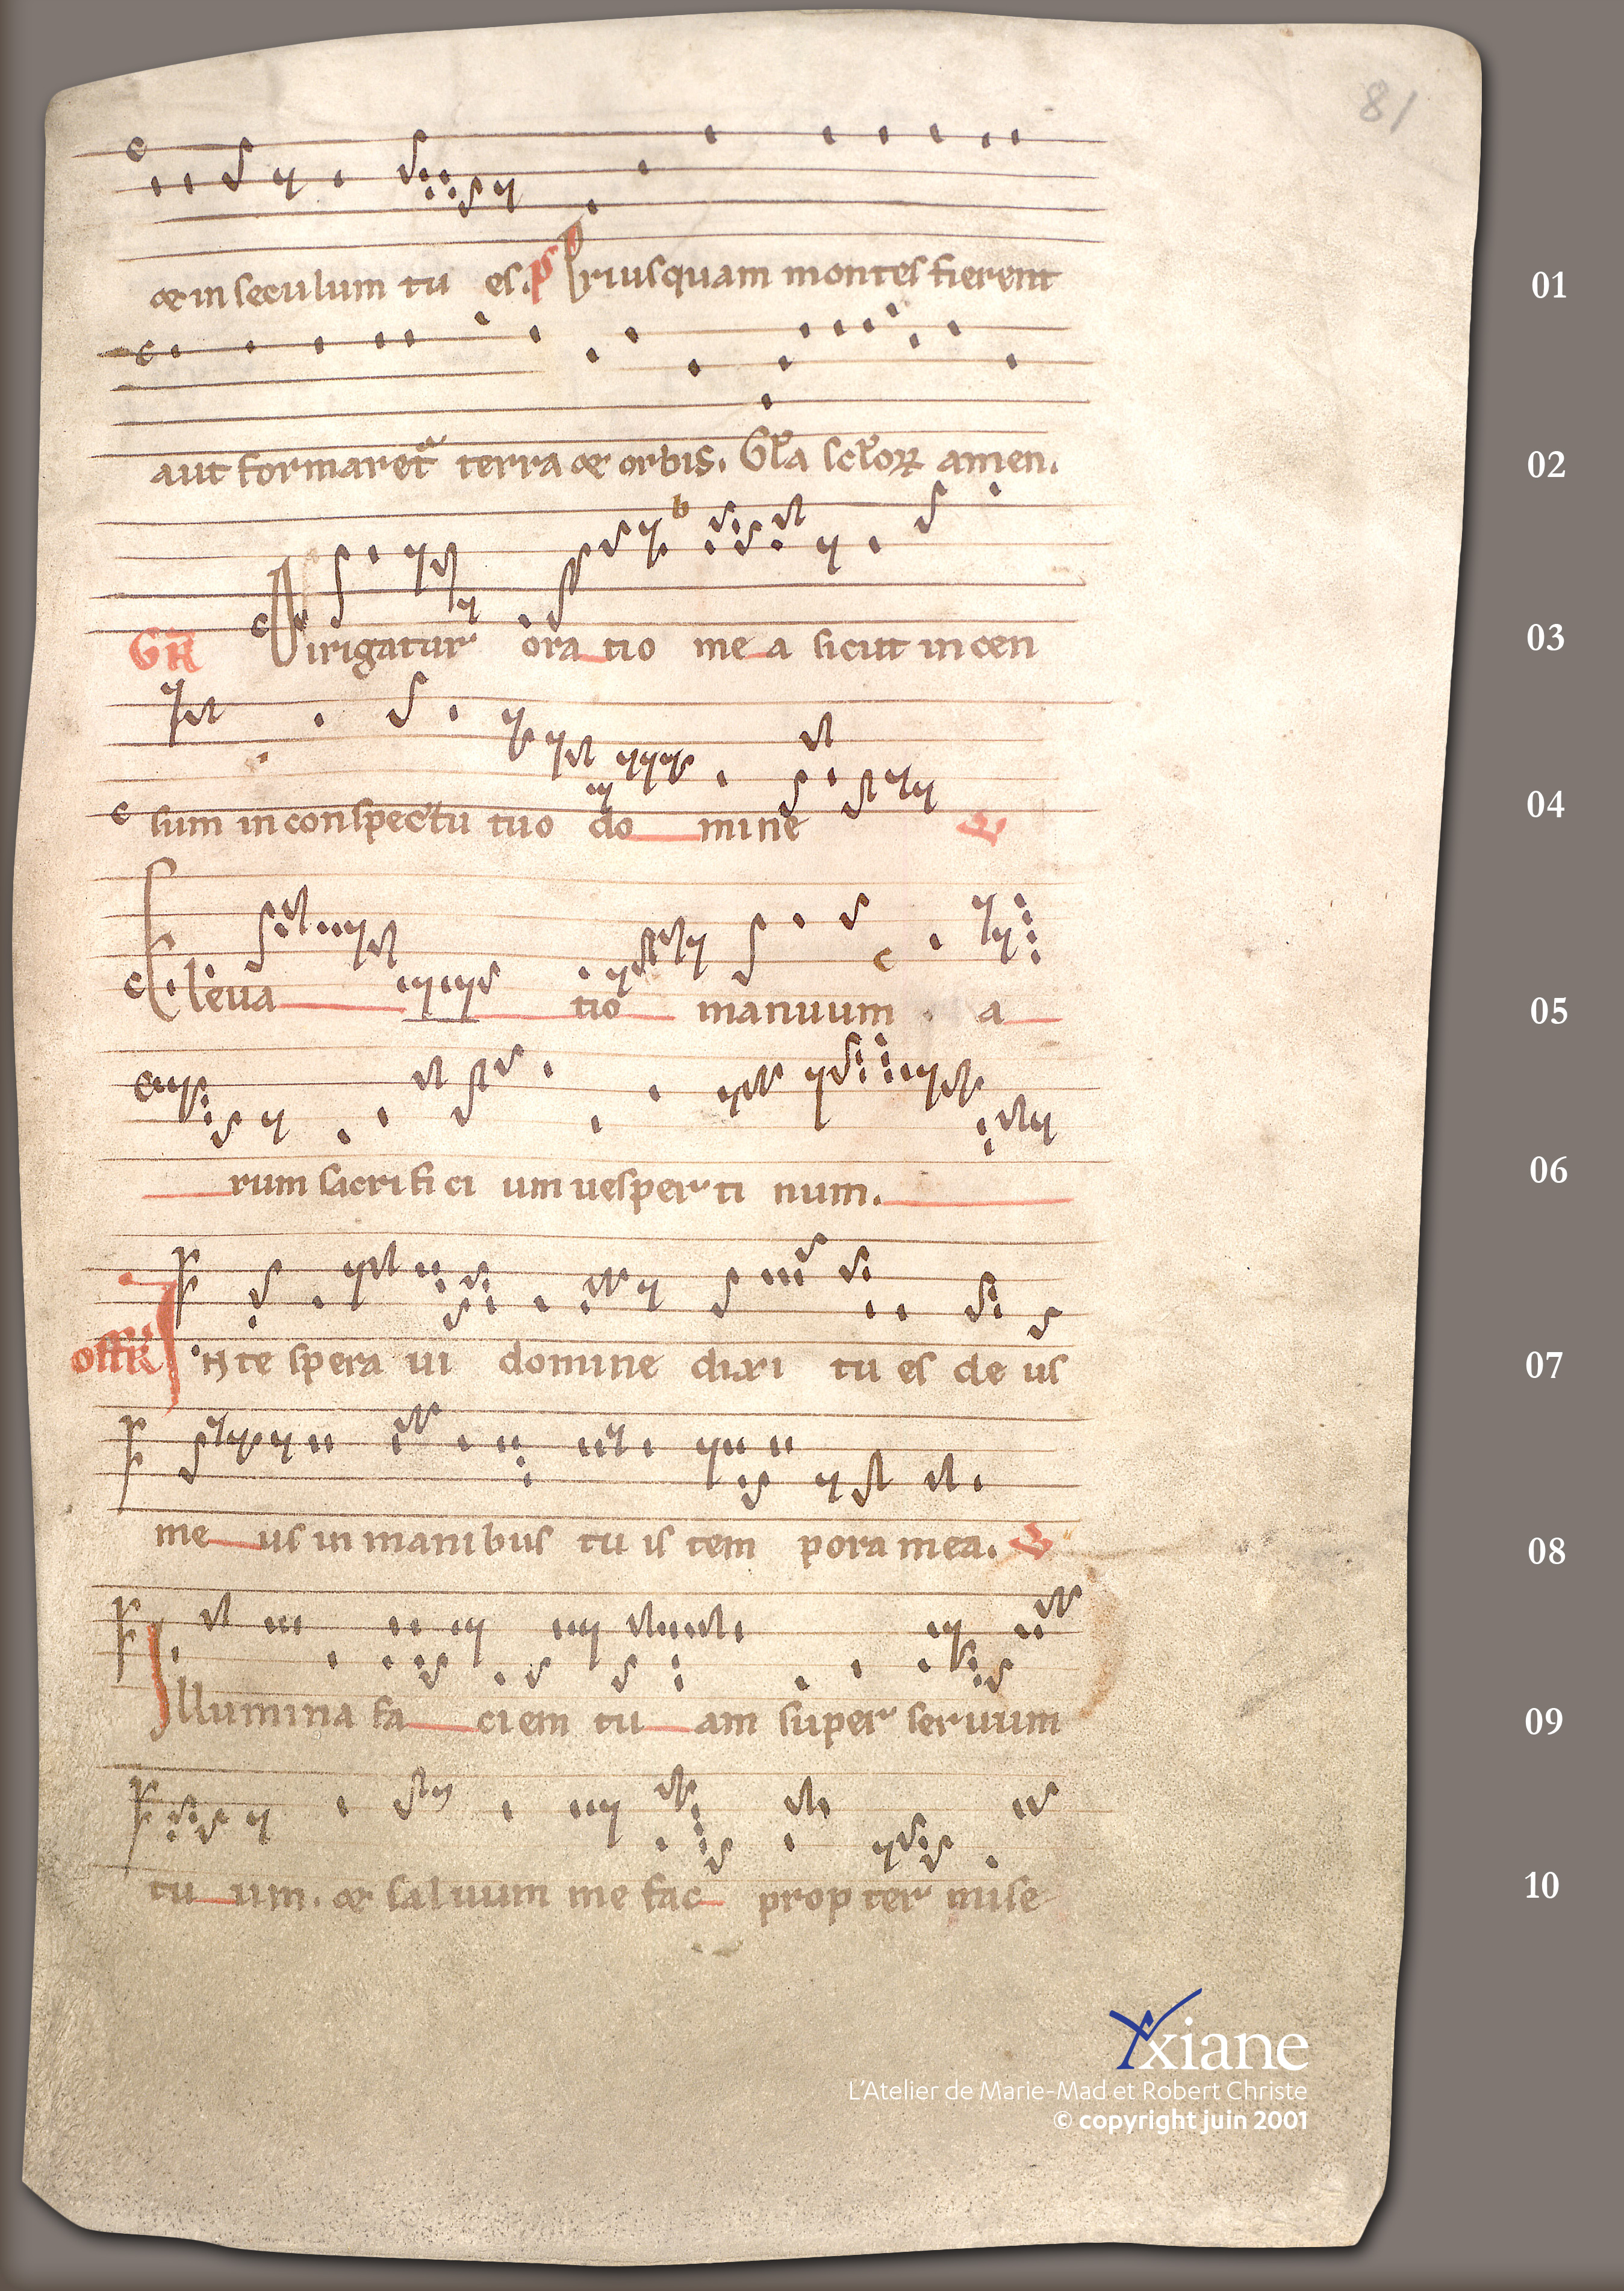 81
& in seculum tu es. ps Priusquam montes fierent
01
aut formaret᷑ terra & orbis. Gl̄a sc̄loꝝ amen.
02
GR Dirigatur oratio mea sicut incen
03
sum in conspectu tuo domine V
04
Eleuatio manuum a
05
rum sacrificium uespertinum.
06
offR In te speraui domine dixi tu es deus
07
meus in manibus tuis tempora mea. V
08
Illumina faciem tuam super seruum
09
tuum. & saluum me fac propter mise
10
Yxiane
L'Atelier de Marie-Mad et Robert Christe
© copyright juin 2001